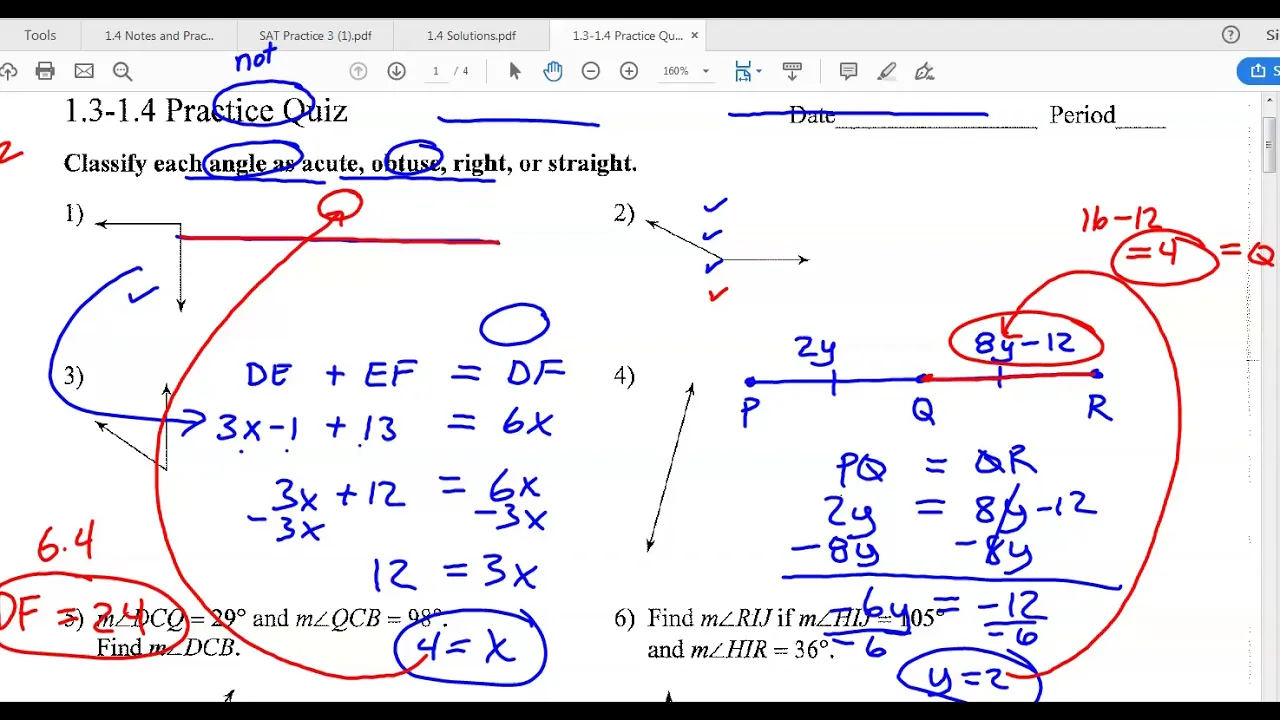 Tools 1.4 Notes and Prac... SAT Practice 3 (1).pdf 1.4 Solutions.pdf 1.3-1.4 Practice Qu... × ?
1 / 4 160%
not
1.3-1.4 Practice Quiz Date Period
Classify each angle as acute, obtuse, right, or straight.
1) 2)
16-12
= 4 = Q
2y 8y-12
3) DE + EF = DF 4)
P Q R
3x-1 + 13 = 6x
PQ = QR
3x + 12 = 6x
-3x -3x
2y = 8y-12
-8y -8y
6.4
12 = 3x
-6y = -12
-6 -6
DF = 24
5) m∠DCQ = 29° and m∠QCB = 98°.
Find m∠DCB.
4 = x
6) Find m∠RIJ if m∠HIJ = 105°
and m∠HIR = 36°.
y = 2